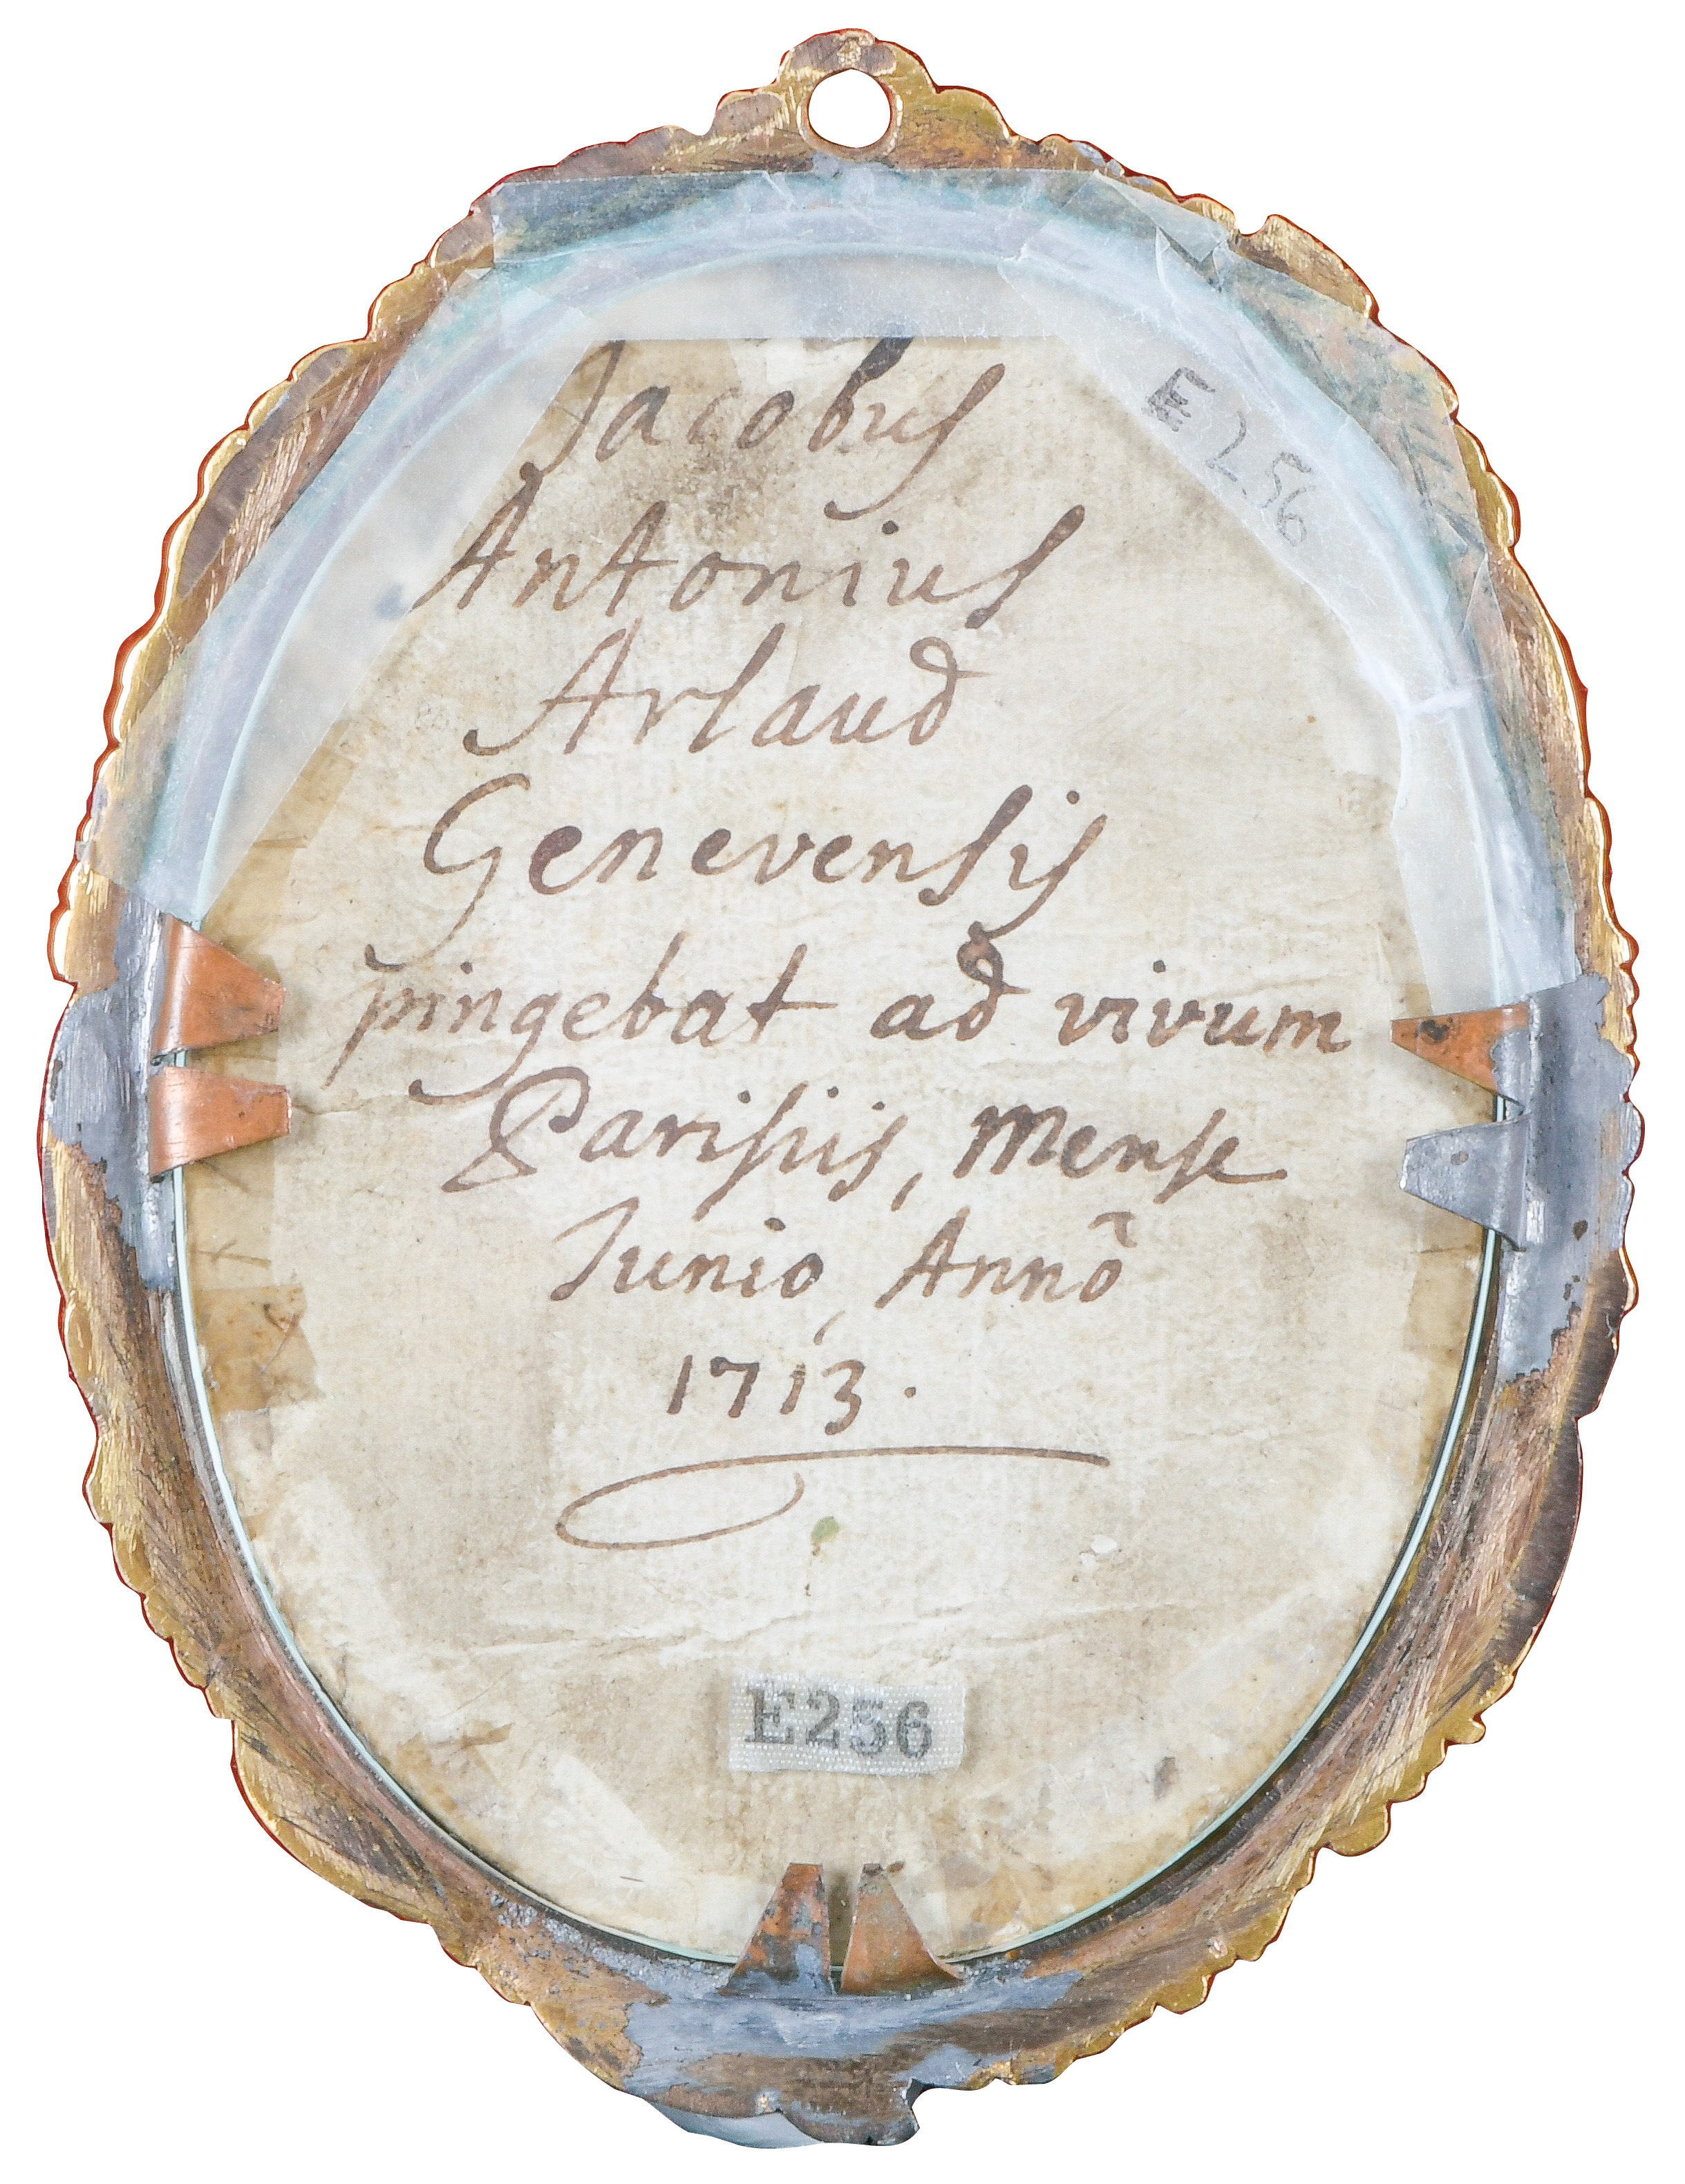 Jacobus
Antonius
Arlaud
Genevensis
pingebat ad vivum
Parisiis, Mense
Junio, Annõ
1713.
E256
E256